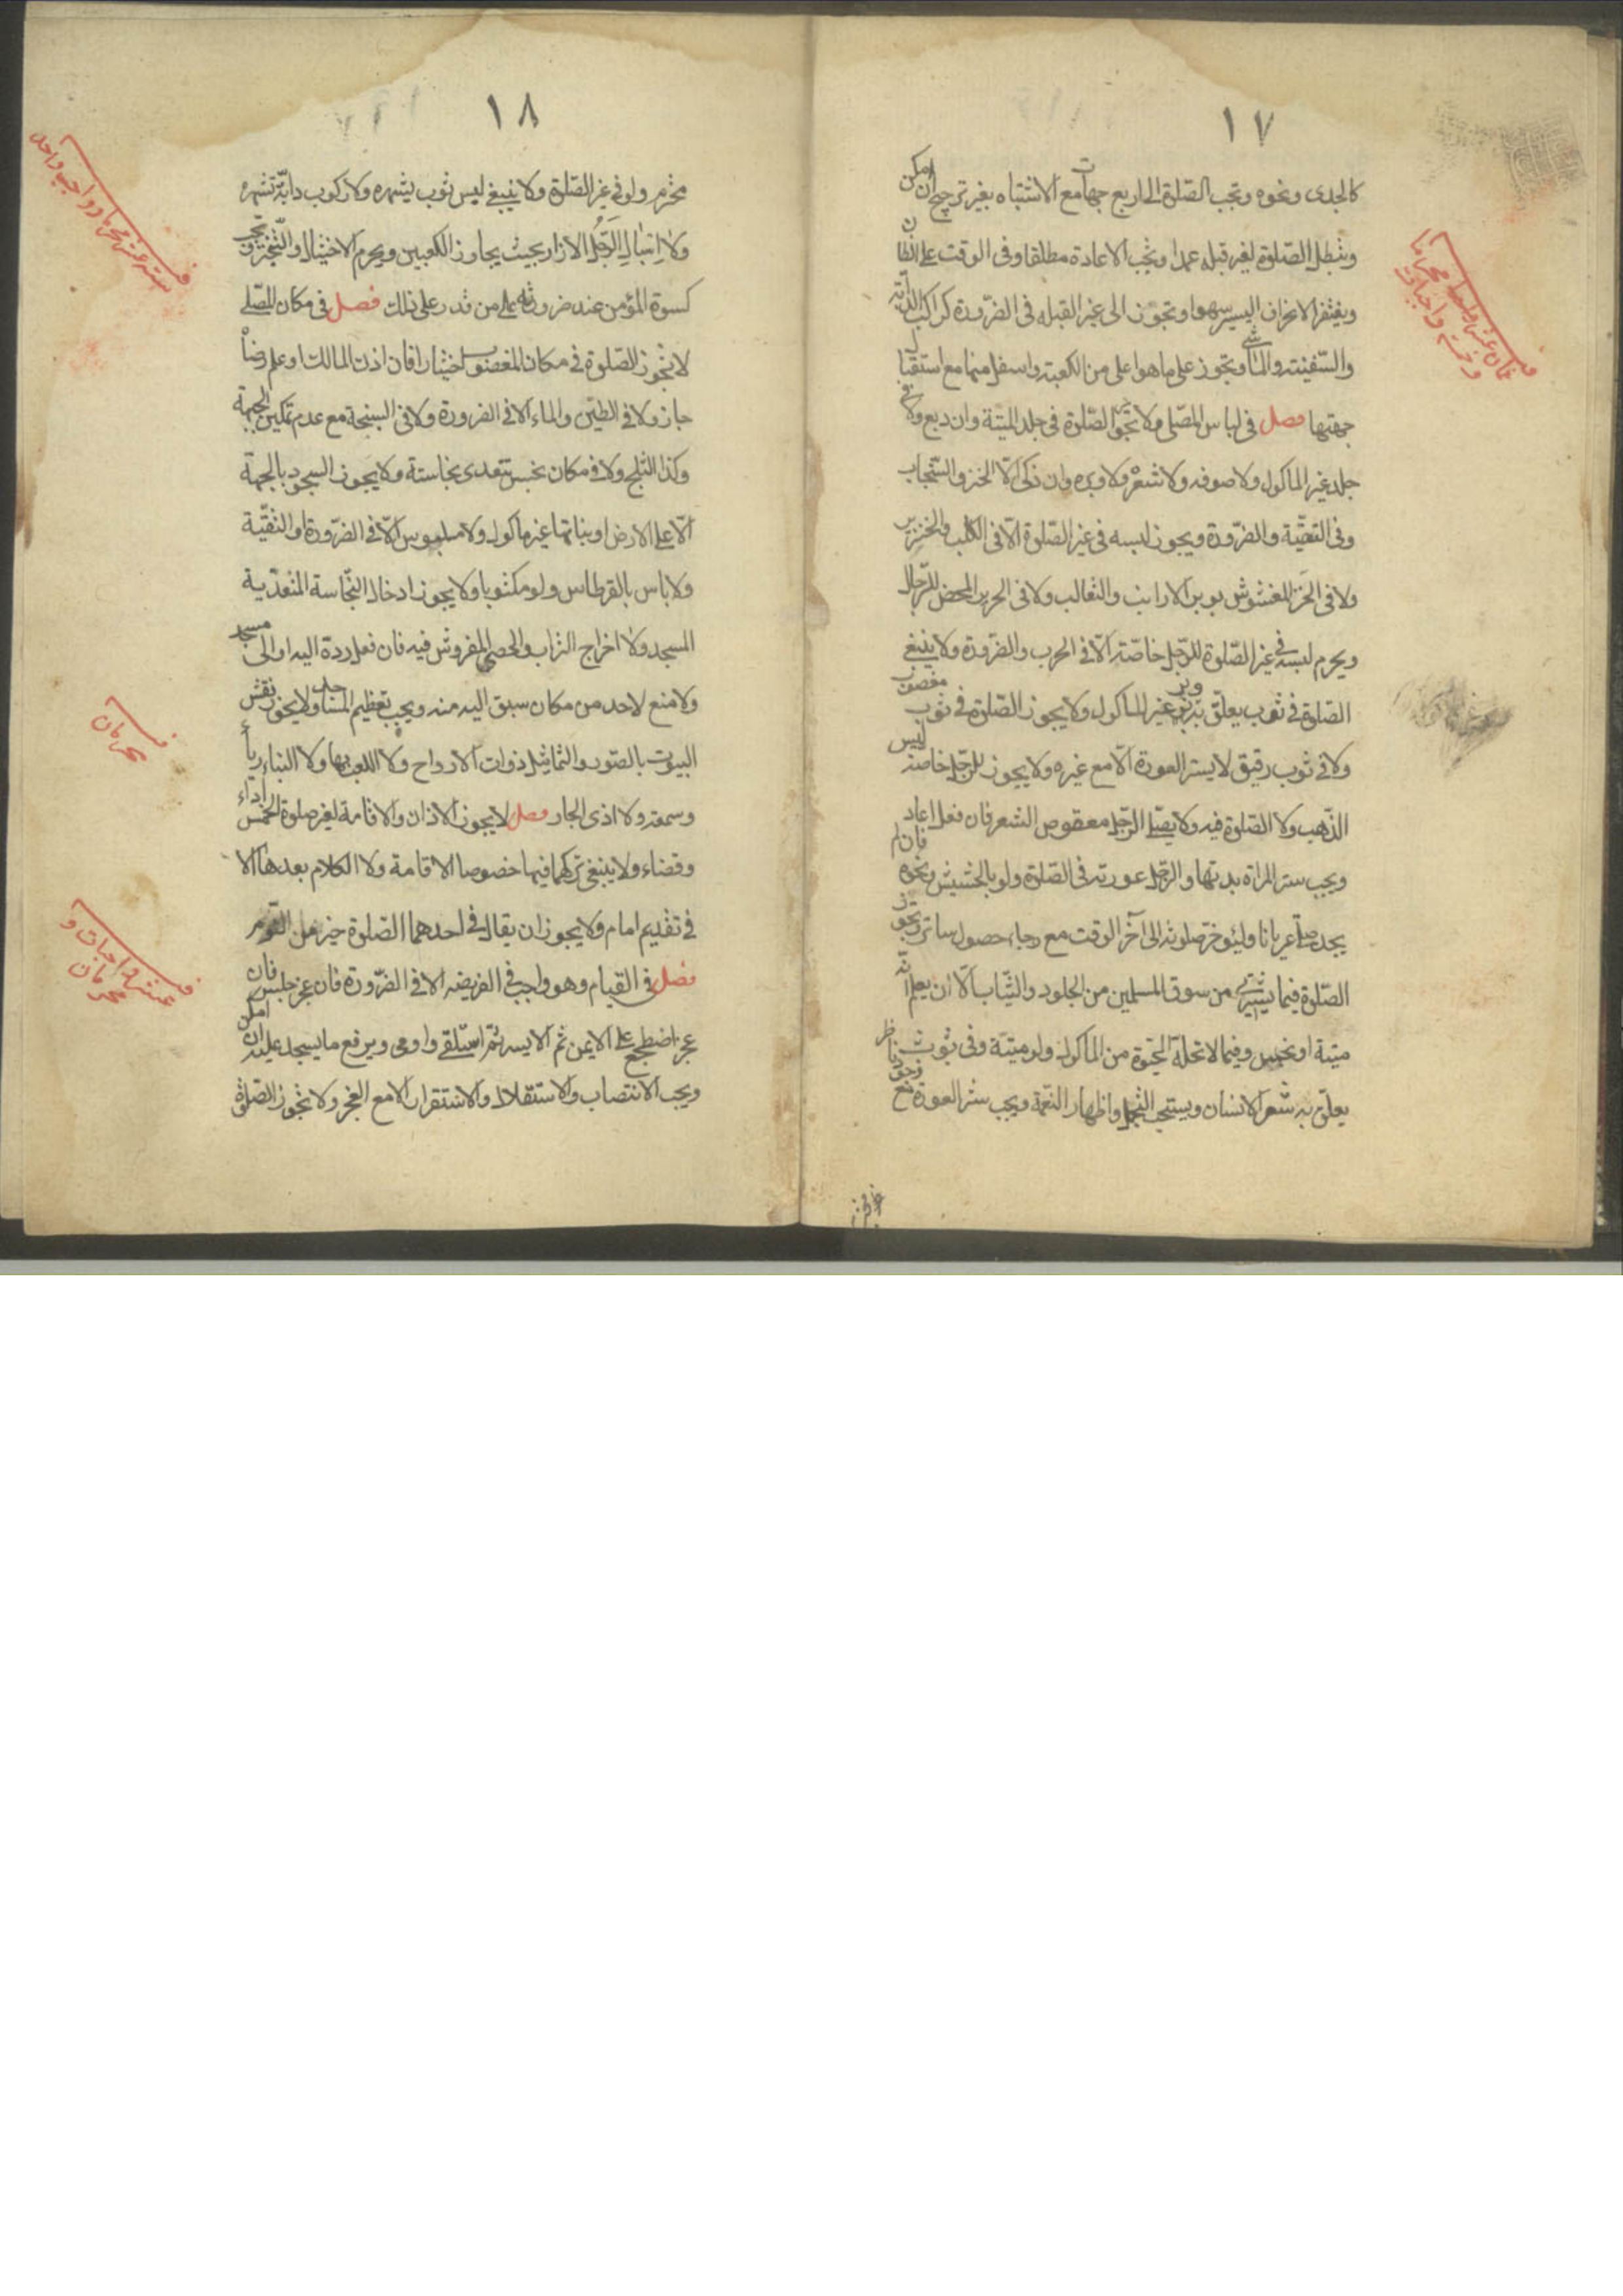 ١٧
كالجدى ونحوه وتجب الصّلوة الى اربع جهات مع الاشتباه بغير ترجيح ان امكن
وتبطل الصّلوة لغير قبله عمدا ويجب الاعادة مطلقا وفى الوقت على الظان
ويغتفر الانحراف اليسير سهوا وتجوز الى غير القبله فى الضّرورة كراكب الدّابّة
والسّفينة والماشى وتجوز على ما هو اعلى من الكعبة واسفل منها مع استقبال
جهتها فصل فى لباس المصّلى لا تجوز الصّلوة فى جلد الميتة وان دبغ ولا فى
جلد غير الماكول ولا صوفه ولا شعره ولا وبره وان ذكى الّا الخز والسّنجاب
وفى التقيّة والضّرورة ويجوز لبسه فى غير الصّلوة الّا فى الكلب والخنزير
ولا فى الخزّ المغشوش بوبر الارانب والثعالب ولا فى الحرير المحض للرّجال
ويحرم لبسه فى غير الصّلوة للرّجل خاصّة الّا فى الحرب والضّرورة ولا ينبغى
الصّلوة فى ثوب يعلّق به وبر غير الماكول ولا يجوز الصّلوة فى ثوب مغصوب
ولا فى ثوب رقيق لا يستر العورة الّا مع غيره ولا يجوز للرّجل خاصة لبس
الذّهب ولا الصّلوة فيه ولا يصّلى الرّجل معقوص الشعر فان فعل اعاد
ويجب ستر المراة بدنها والرّجل عورته فى الصّلوة ولو بالحشيش ونحوه فان لم
يجد صلّى عريانا وليئوخر صلوته الى آخر الوقت مع رجاء حصول ساتر وتجوز
الصّلوة فيما يشترى من سوق المسلمين من الجلود والثّياب الّا ان يعلم انّه
ميتة او نجس وفيما لا تحلّه الحيوة من الماكول ولو ميتة وفى ثوب
يعلّق به شعر الانسان ويستحب التجمل واظهار النّعمة ويجب ستر العورة عن ناظر
١٨
محترم ولو فى غير الصّلوة ولا ينبغى لبس ثوب يشهره ولا ركوب دابّة تشهره
ولا اسبال الرّجل الازار بحيث يجاوز الكعبين ويحرم الاختيال والتّبختر وتجب
كسوة المؤمن عند ضرورته على من قدر على ذلك فصل فى مكان المصّلى
لا تجوز الصّلوة فى مكان المغصوب اختيارا فان اذن المالك او علم رضاه
جاز ولا فى الطين والماء الا فى الضرورة ولا فى السبخة مع عدم تمكين الجبهة
وكذا الثلج ولا فى مكان نجس تتعدى نجاسته ولا يجوز السجود بالجبهة
الّا على الارض او نباتها غير ماكول ولا ملبوس الّا فى الضّرورة او التقيّة
ولا باس بالقرطاس ولو مكتوبا ولا يجوز ادخال النّجاسة المتعدّية
المسجد ولا اخراج التراب والحصى المفروش فيه فان فعل ردّه اليه او الى مسجد
ولا منع لاحد من مكان سبق اليه منه ويجب تعظيم المساجد ولا يجوز نقش
البيوت بالصّور والتماثيل ذوات الارواح ولا اللعب بها ولا البناء رياء
وسمعة ولا اذى الجار فصل لا يجوز الاذان والاقامة لغير صلوة الخمس اداء
وقضاء ولا ينبغى تركهما فيها خصوصا الاقامة ولا الكلام بعدها الا
فى تقديم امام ولا يجوز ان يقال فى احدهما الصّلوة خير من النّوم
فصل فى القيام وهو واجب فى الفريضه الا فى الضّرورة فان عجز جلس فان
عجز اضطجع على الايمن ثم الايسر ثمّ استلقى واومى ويرفع ما يسجد عليه ان امكن
ويجب الانتصاب والاستقلال والاستقرار الا مع العجز ولا تجوز الصّلوة